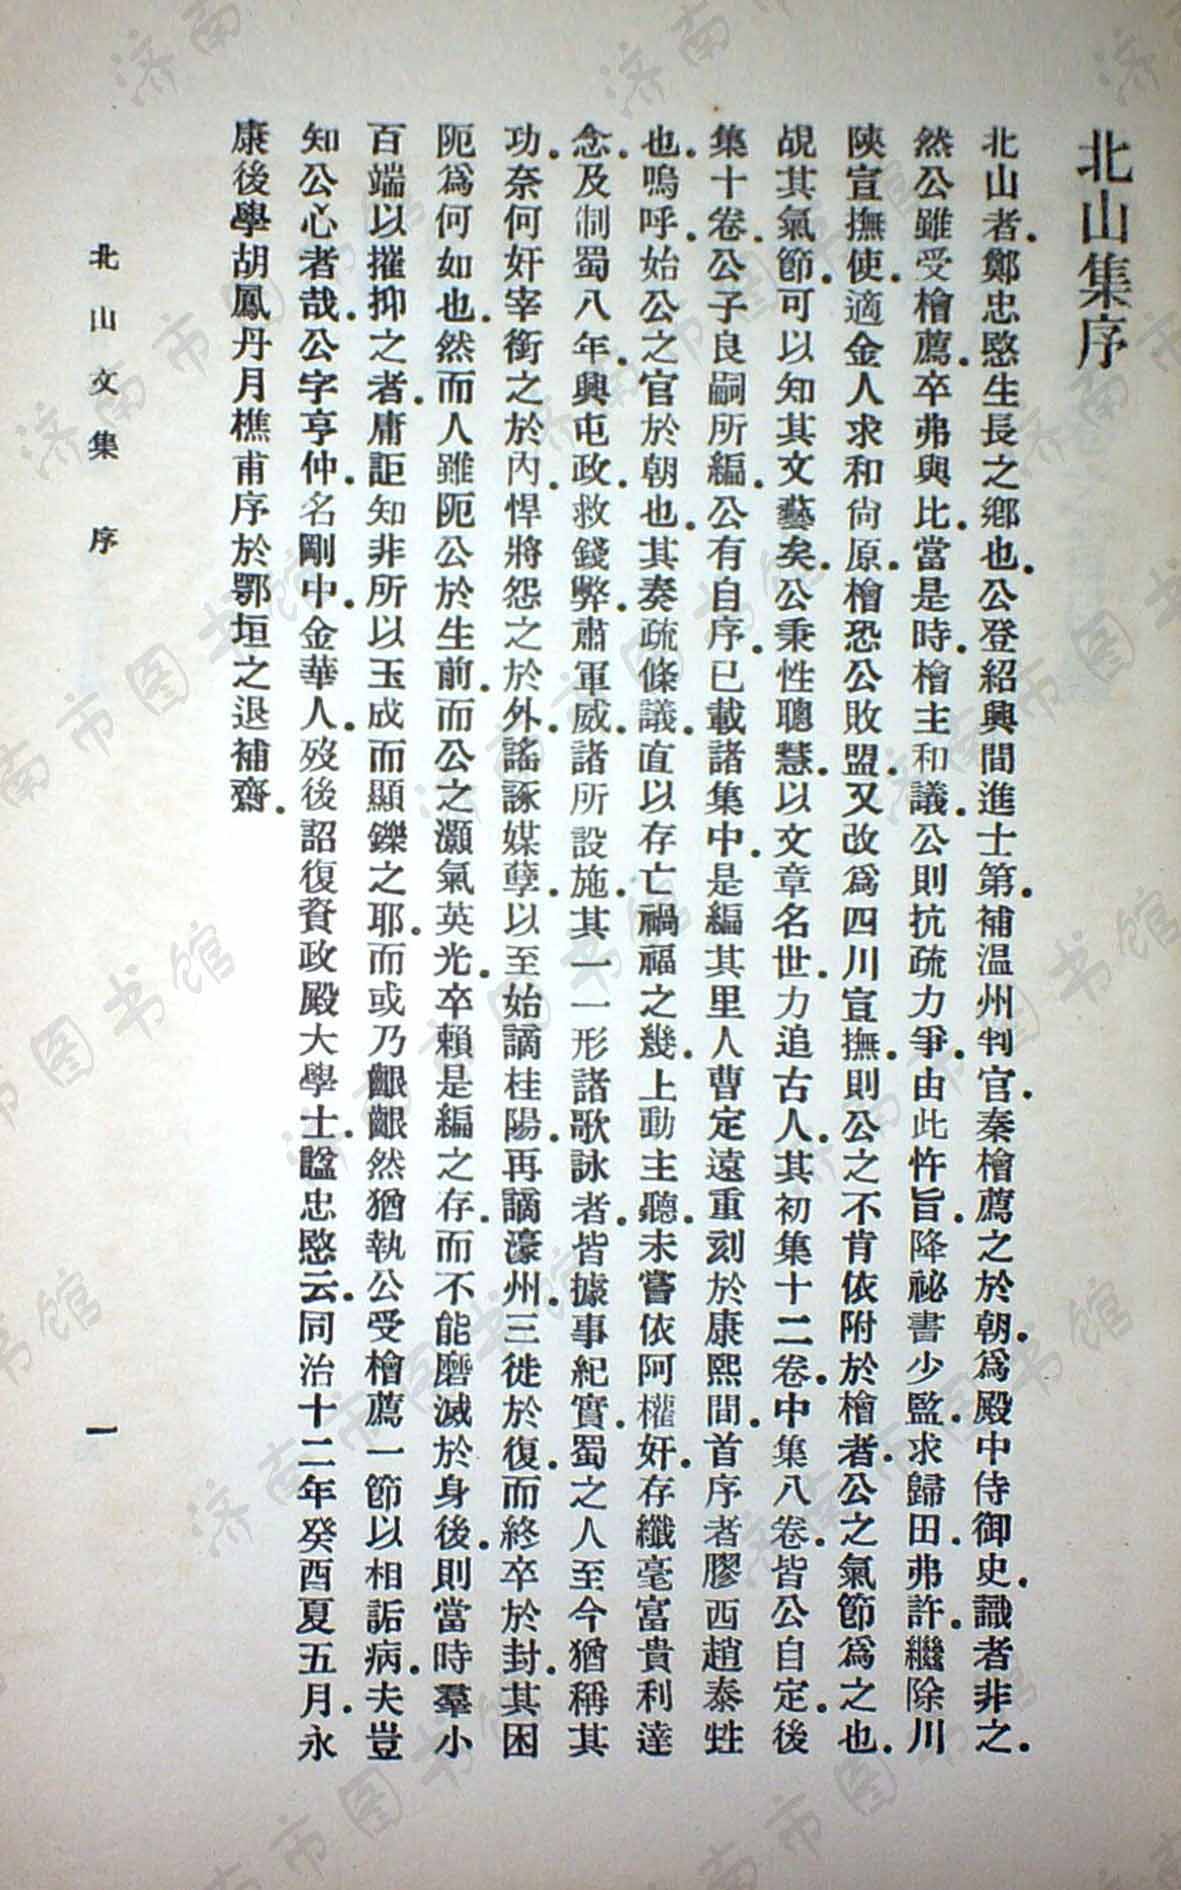 北山集序
北山者。鄭忠愍生長之鄉也。公登紹興間進士第。補温州判官。秦檜薦之於朝。爲殿中侍御史。識者非之。
然公雖受檜薦。卒弗與比。當是時。檜主和議。公則抗疏力爭。由此忤旨。降祕書少監。求歸田。弗許。繼除川
陝宣撫使。適金人求和尙原。檜恐公敗盟。又改爲四川宣撫。則公之不肯依附於檜者。公之氣節爲之也。
覘其氣節。可以知其文藝矣。公秉性聰慧。以文章名世。力追古人。其初集十二卷。中集八卷。皆公自定。後
集十卷。公子良嗣所編。公有自序。已載諸集中。是編其里人曹定遠重刻於康熙間。首序者膠西趙泰甡
也。嗚呼。始公之官於朝也。其奏疏條議。直以存亡禍福之幾。上動主聽。未嘗依阿權奸。存纖毫富貴利達
念。及制蜀八年。興屯政。救錢弊。肅軍威。諸所設施。其一一形諸歌詠者。皆據事紀實。蜀之人至今猶稱其
功。奈何奸宰銜之於內。悍將怨之於外。謠諑媒孽。以至始謫桂陽。再謫濠州。三徙於復。而終卒於封。其困
阨爲何如也。然而人雖阨公於生前。而公之灝氣英光。卒賴是編之存。而不能磨滅於身後。則當時羣小
百端以摧抑之者。庸詎知非所以玉成而顯鑠之耶。而或乃齦齦然猶執公受檜薦一節以相詬病。夫豈
知公心者哉。公字亨仲。名剛中。金華人。歿後詔復資政殿大學士。諡忠愍云。同治十二年癸酉夏五月。永
康後學胡鳳丹月樵甫序於鄂垣之退補齋。
北山文集 序 一
济南市图书馆